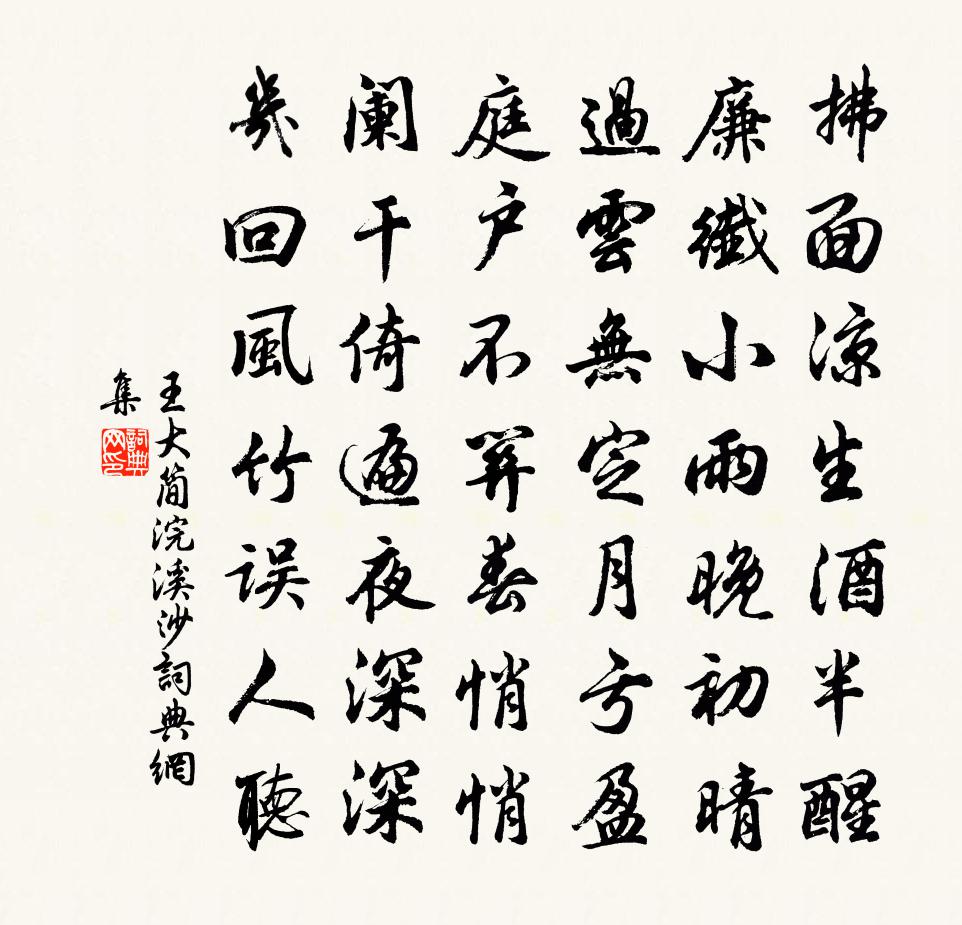 拂面涼生酒半醒
廉纖小雨晚初晴
過雲無定月亏盈
庭户不開春悄悄
阑干倚遍夜深深
幾回風竹误人聽
王大简浣溪沙詞典網
集
詞典网印